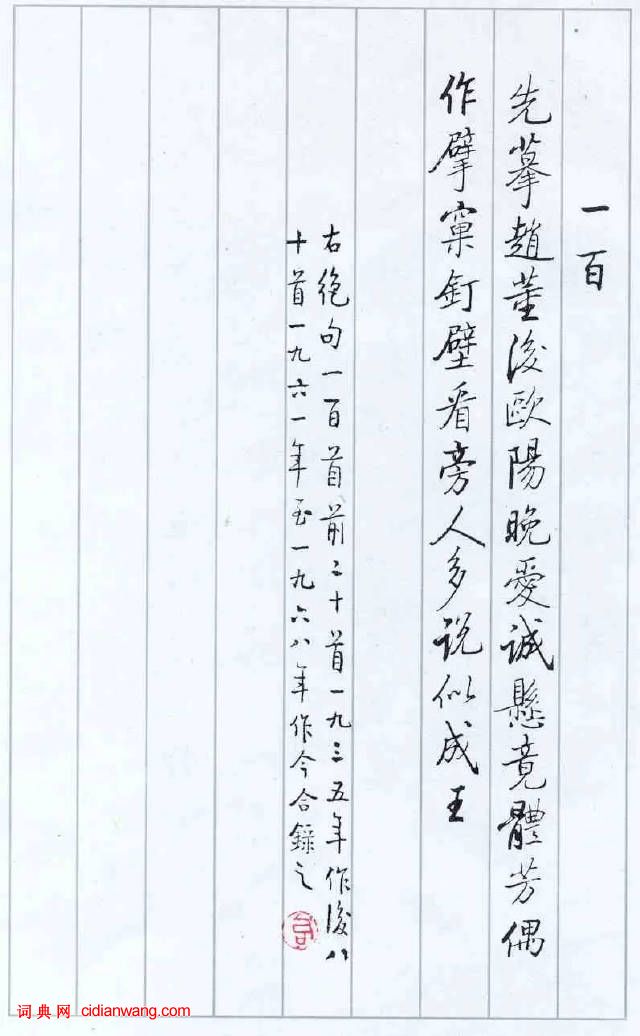 一百
先摹趙董後歐陽晚愛誠懸竟體芳偶
作擘窠釘壁看旁人多說似成王
右絕句一百首前二十首一九三五年作後八
十首一九六一年至一九六八年作今合錄之
词典网 cidianwang.com